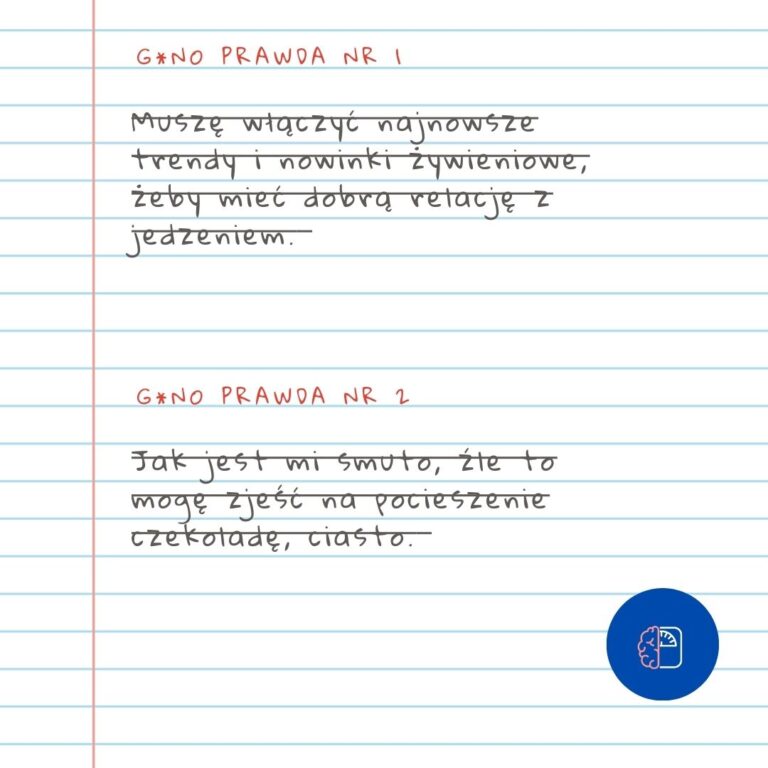 G*NO PRAWDA NR 1
Muszę włączyć najnowsze
trendy i nowinki żywieniowe,
żeby mieć dobrą relację z
jedzeniem.
G*NO PRAWDA NR 2
Jak jest mi smuto, źle to
mogę zjeść na pocieszenie
czekoladę, ciasto.